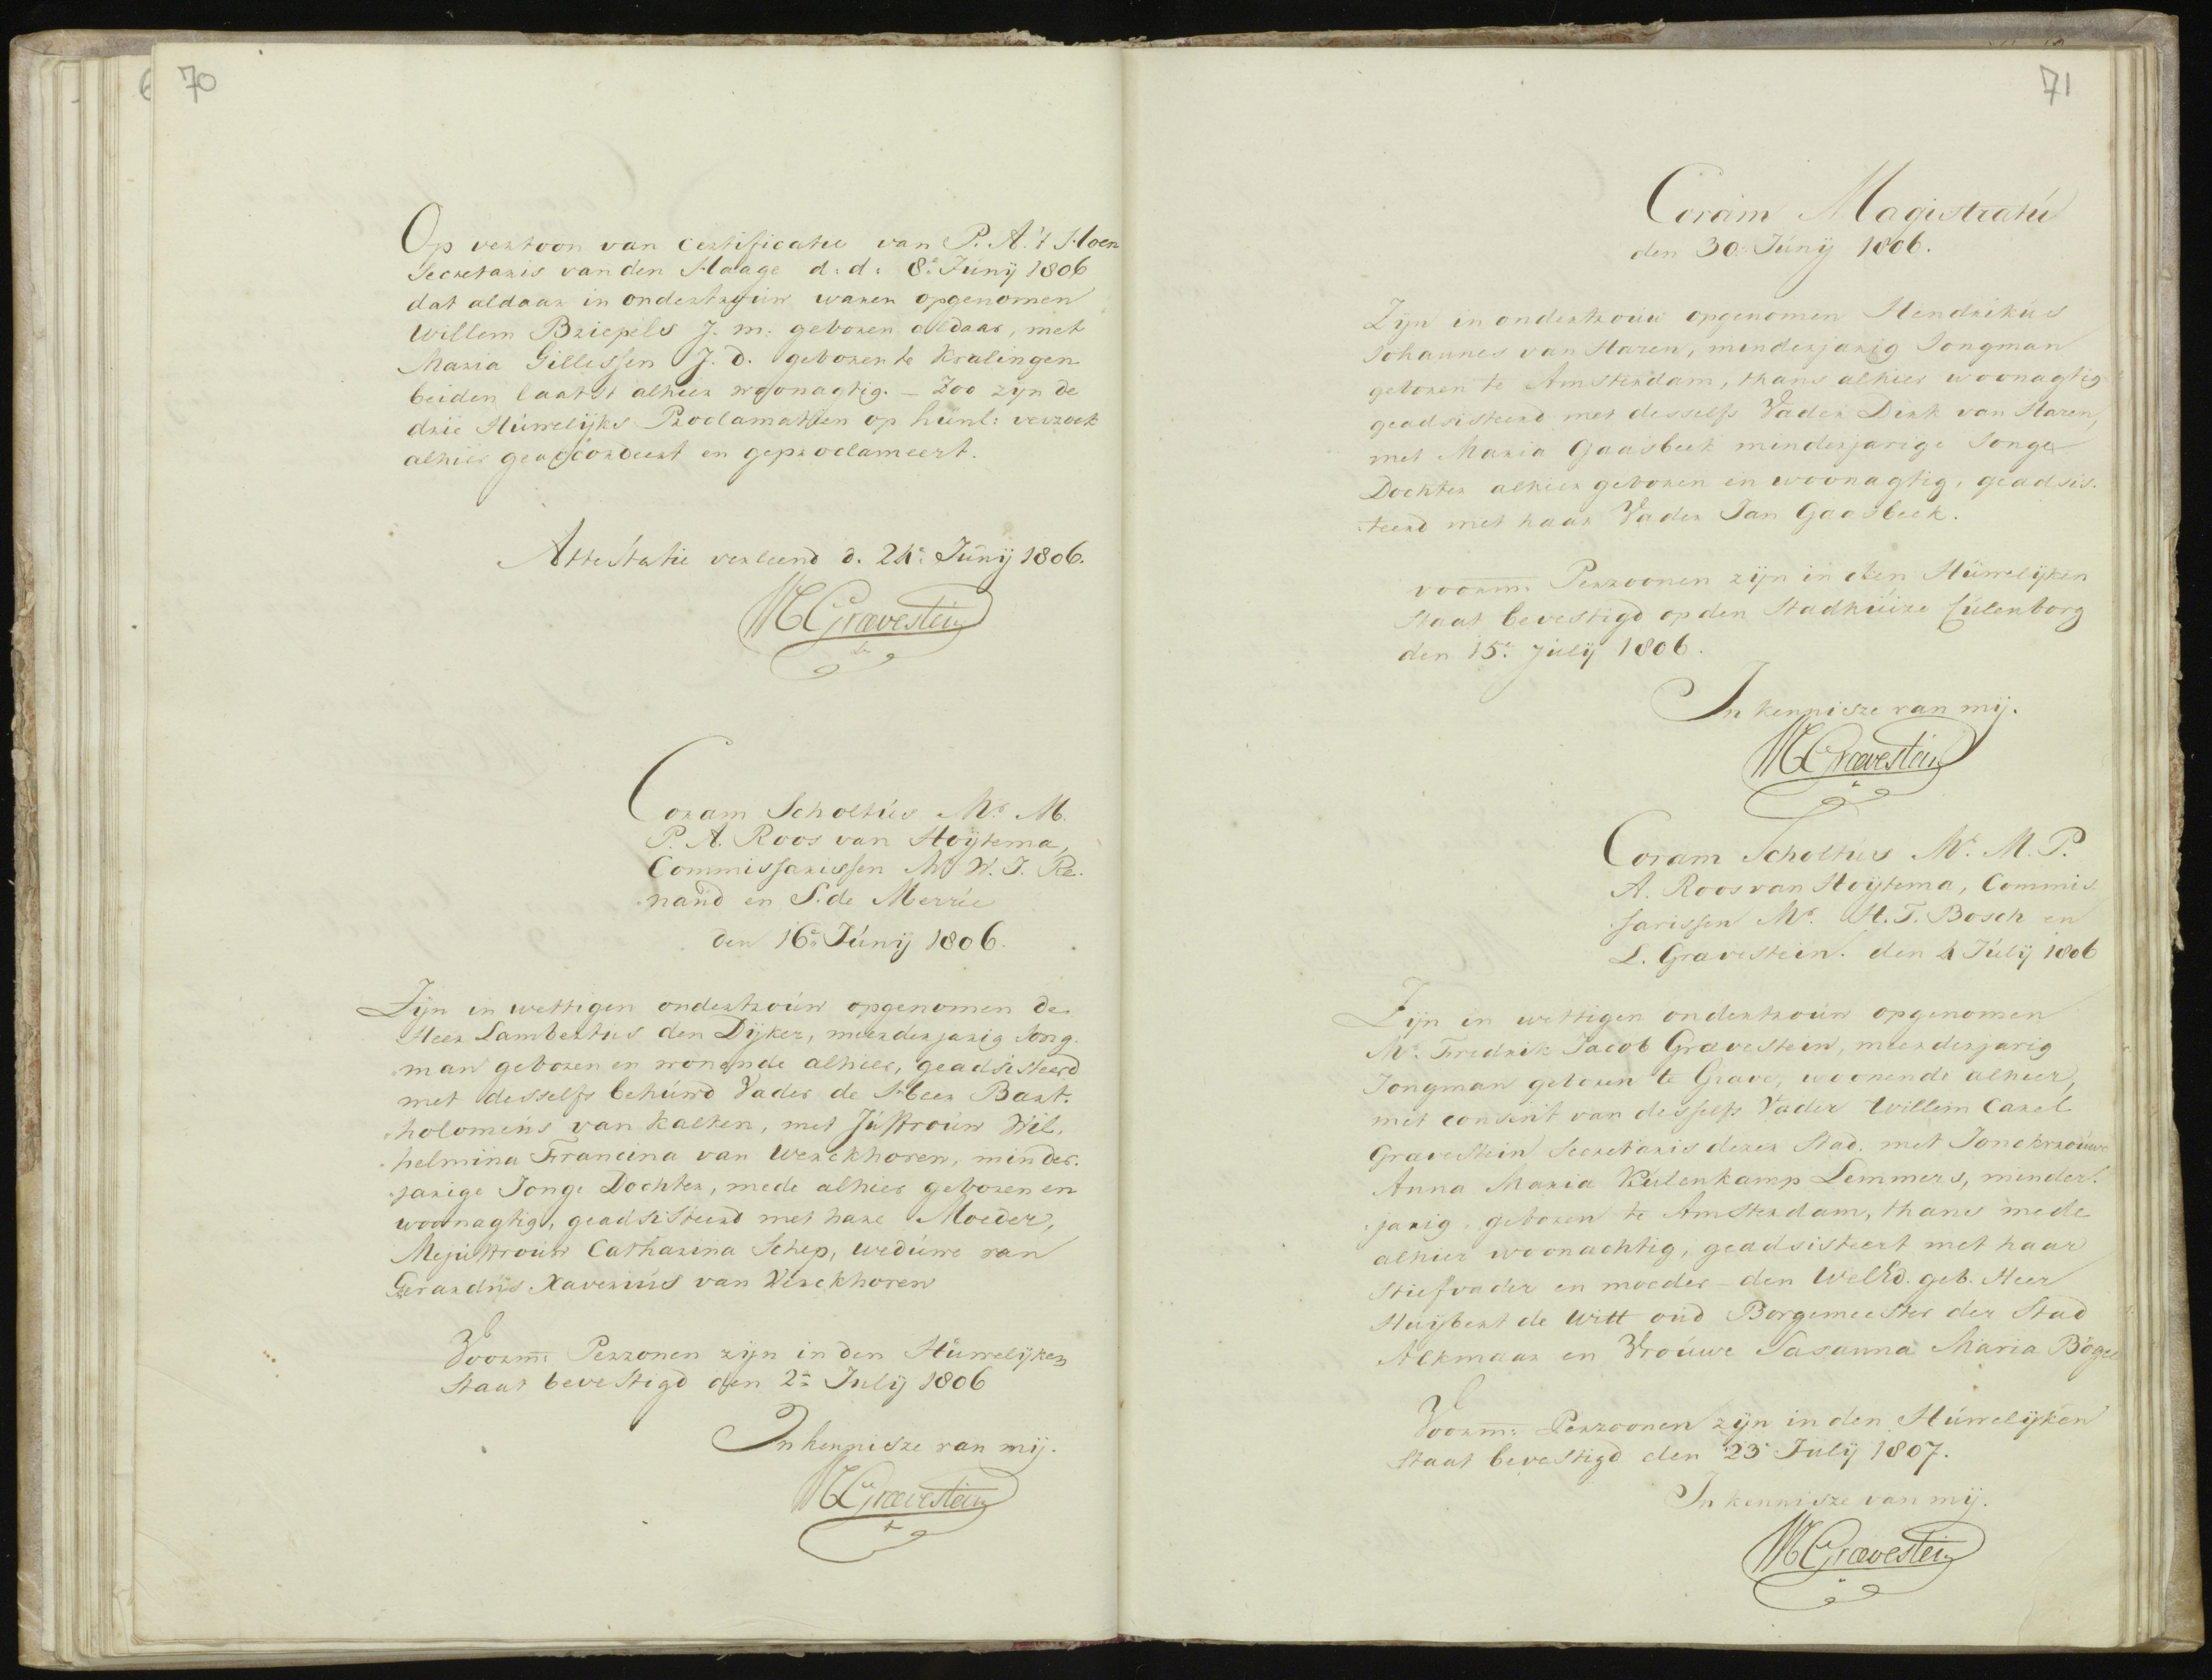 70
Op vertoon van certificatie van P. A. 't Hoen
Secretaris van den Haage d: d: 8e Junij 1806
dat aldaar in ondertrouw waren opgenomen
Willem Briepels J. m: geboren aldaar, met
Maria Gillessen J. D. geboren te Kralingen
beiden laatst alhier woonagtig. – Zoo zijn de
drie Huwelijks Proclamatien op hunl: verzoek
alhier geaccordeert en geproclameert.
Attestatie verleend d. 24e Junij 1806.
WCGravestein
Coram Scholtus Mr. M.
P. A. Roos van Hoytema,
Commissarissen Mr W. J. Re-
naud en S. de Merrie
den 16e Junij 1806.
Zijn in wettigen ondertrouw opgenomen de
Heer Lambertus den Dijker, meerderjarig Jong-
man geboren en wonende alhier, geadsisteerd
met desselfs behuwd Vader de Heer Bart-
holomeus van Kalken, met Juffrouw Wil-
helmina Francina van Werckhoren, minder-
jarige Jonge Dochter, mede alhier geboren en
woonagtig, geadsisteerd met hare Moeder,
Mejuffrouw Catharina Schep, weduwe van
Gerardus Xaverius van Werckhoren
Voorm: Perzonen zijn in den Huwelijken
Staat bevestigd den 2e July 1806
In kennisze van mij.
WCGravestein
71
Coram Magistratu
den 30e Junij 1806.
Zijn in ondertrouw opgenomen Hendrikus
Johannes van Haren, minderjarig Jongman
geboren te Amsterdam, thans alhier woonagtig
geadsisteerd met desselfs Vader Dirk van Haren,
met Maria Gaasbeek minderjarige Jonge
Dochter alhier geboren en woonagtig, geadsis-
teerd met haar Vader Jan Gaasbeek.
voorm: Perzoonen zijn in den Huwelijken
Staat bevestigd op den Stadhuize Culenborg
den 15e July 1806.
In kennisze van mij.
WCGravestein
Coram Scholtus Mr. M. P.
A. Roos van Hoytema, Commis-
sarissen Mr. H. T. Bosch en
L. Gravestein. den 4 July 1806
Zijn in wettigen ondertrouw opgenomen
Mr. Fredrik Jacob Gravestein, meerderjarig
Jongman geboren te Grave, woonende alhier,
met consent van desselfs Vader Willem Carel
Gravestein Secretaris dezer Stad. met Jonckvrouwe
Anna Maria Kulenkamp Lemmers, minder-
jarig, geboren te Amsterdam, thans mede
alhier woonachtig, geadsisteert met haar
Stiefvader en moeder – den WelEd. geb. Heer
Huijbert de Witt oud Borgemeester der Stad
Alkmaar en Vrouwe Sasanna Maria Bögel
Voorm: Perzoonen zijn in den Huwelijken
Staat bevestigd den 23 July 1807.
In kennisze van mij.
WCGravestein